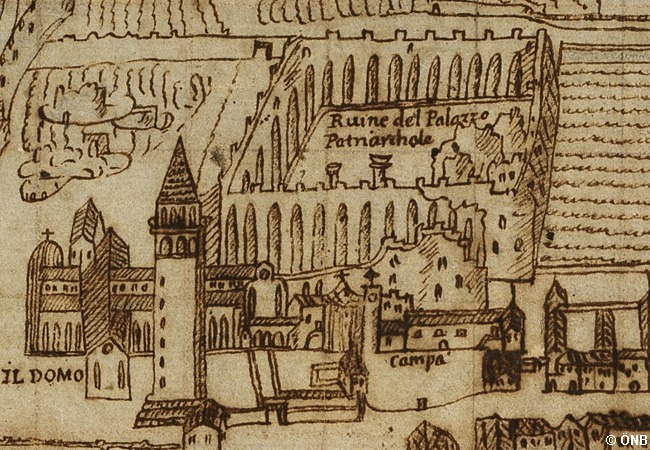 Ruine del Palazzo
Patriarchale
IL DOMO
Campa
© ÖNB